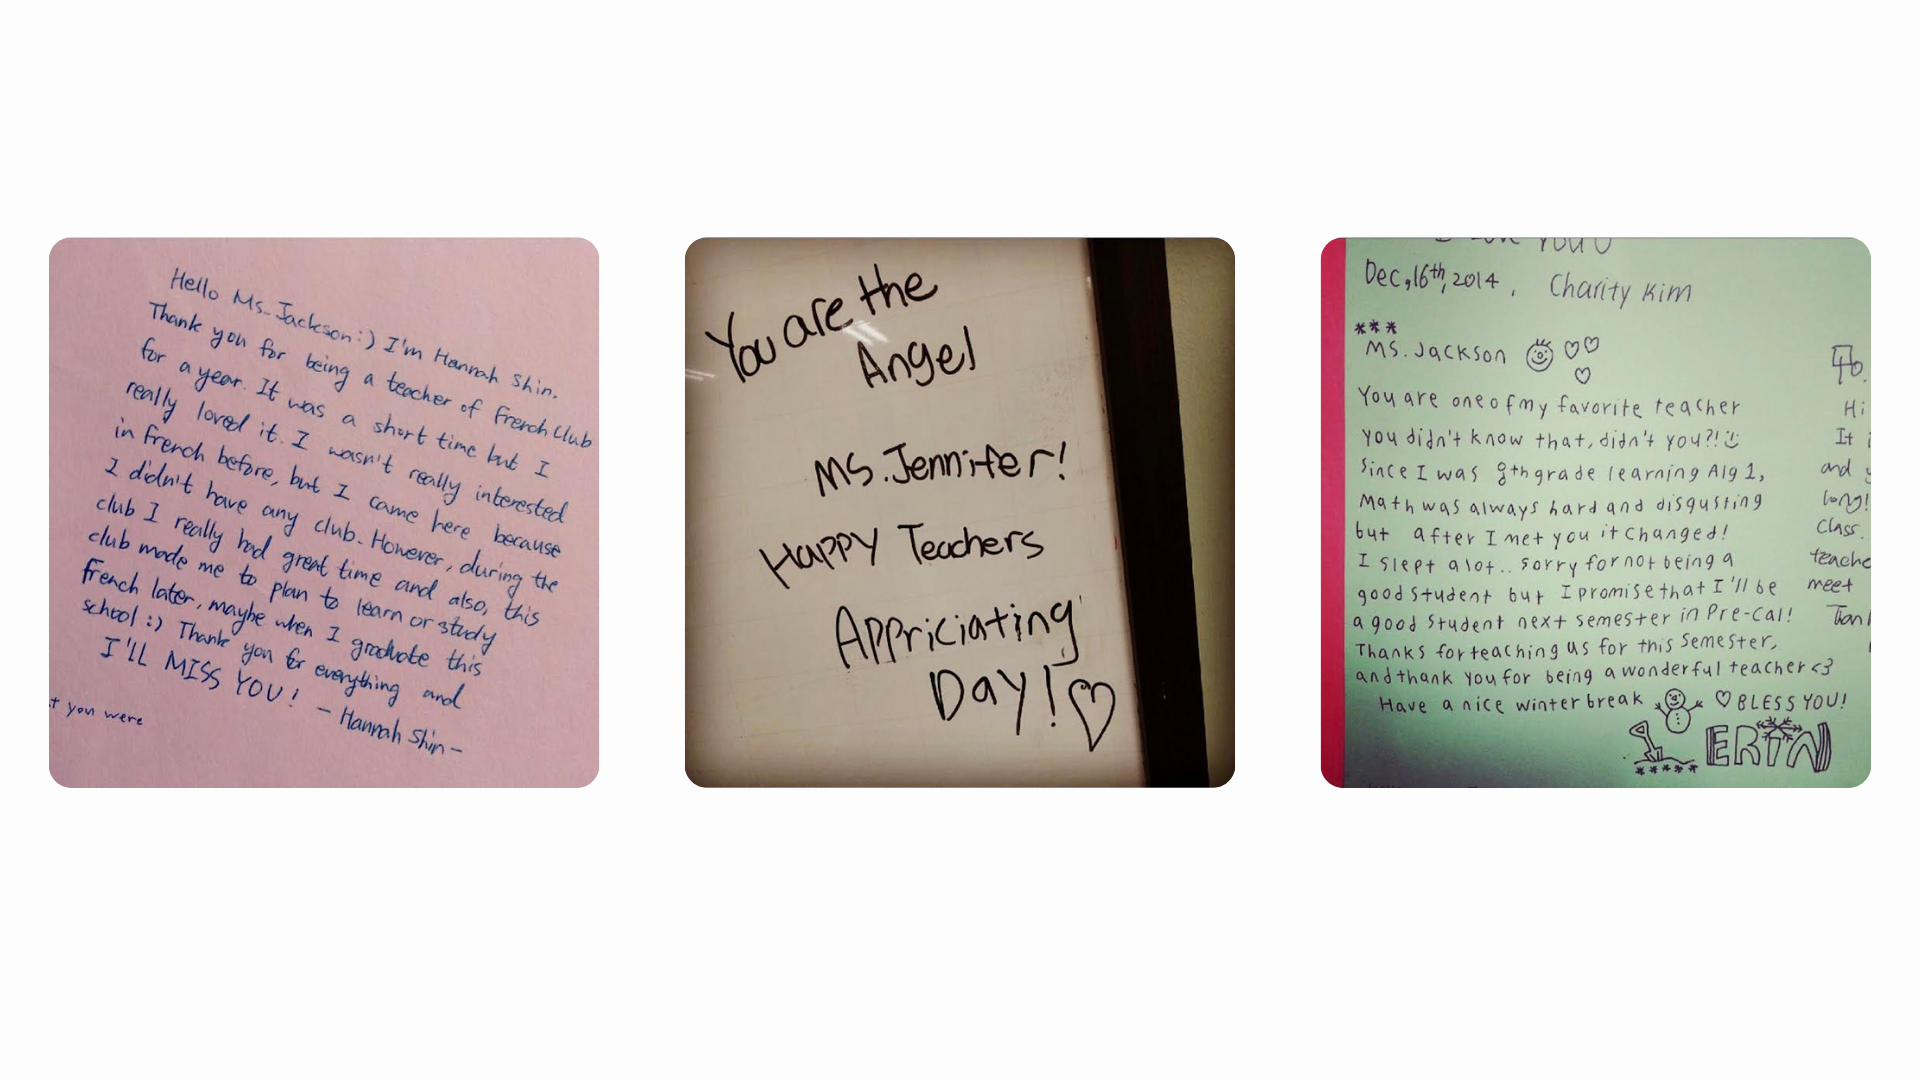 Hello Ms. Jackson :) I'm Hannah Shin.
Thank you for being a teacher of French Club
for a year. It was a short time but I
really loved it. I wasn't really interested
in French before, but I came here because
I didn't have any club. However, during the
club I really had great time and also, this
club made me to plan to learn or study
French later, maybe when I graduate this
school :) Thank you for everything and
I'LL MISS YOU!
- Hannah Shin -
you were
You are the
Angel
Ms. Jennifer!
Happy Teachers
Appriciating
Day! ♡
YOU
Dec, 16th, 2014. Charity Kim
***
Ms. Jackson ♡♡♡
You are one of my favorite teacher
you didn't know that, didn't you?!
Since I was 8th grade learning Alg 1,
Math was always hard and disgusting
but after I met you it changed!
I slept alot.. sorry for not being a
good student but I promise that I'll be
a good student next semester in Pre-Cal!
Thanks for teaching us for this semester,
and thank you for being a wonderful teacher <3
Have a nice winter break ♡ BLESS YOU!
ERIN
To.
Hi
It
and
long!
class.
meet